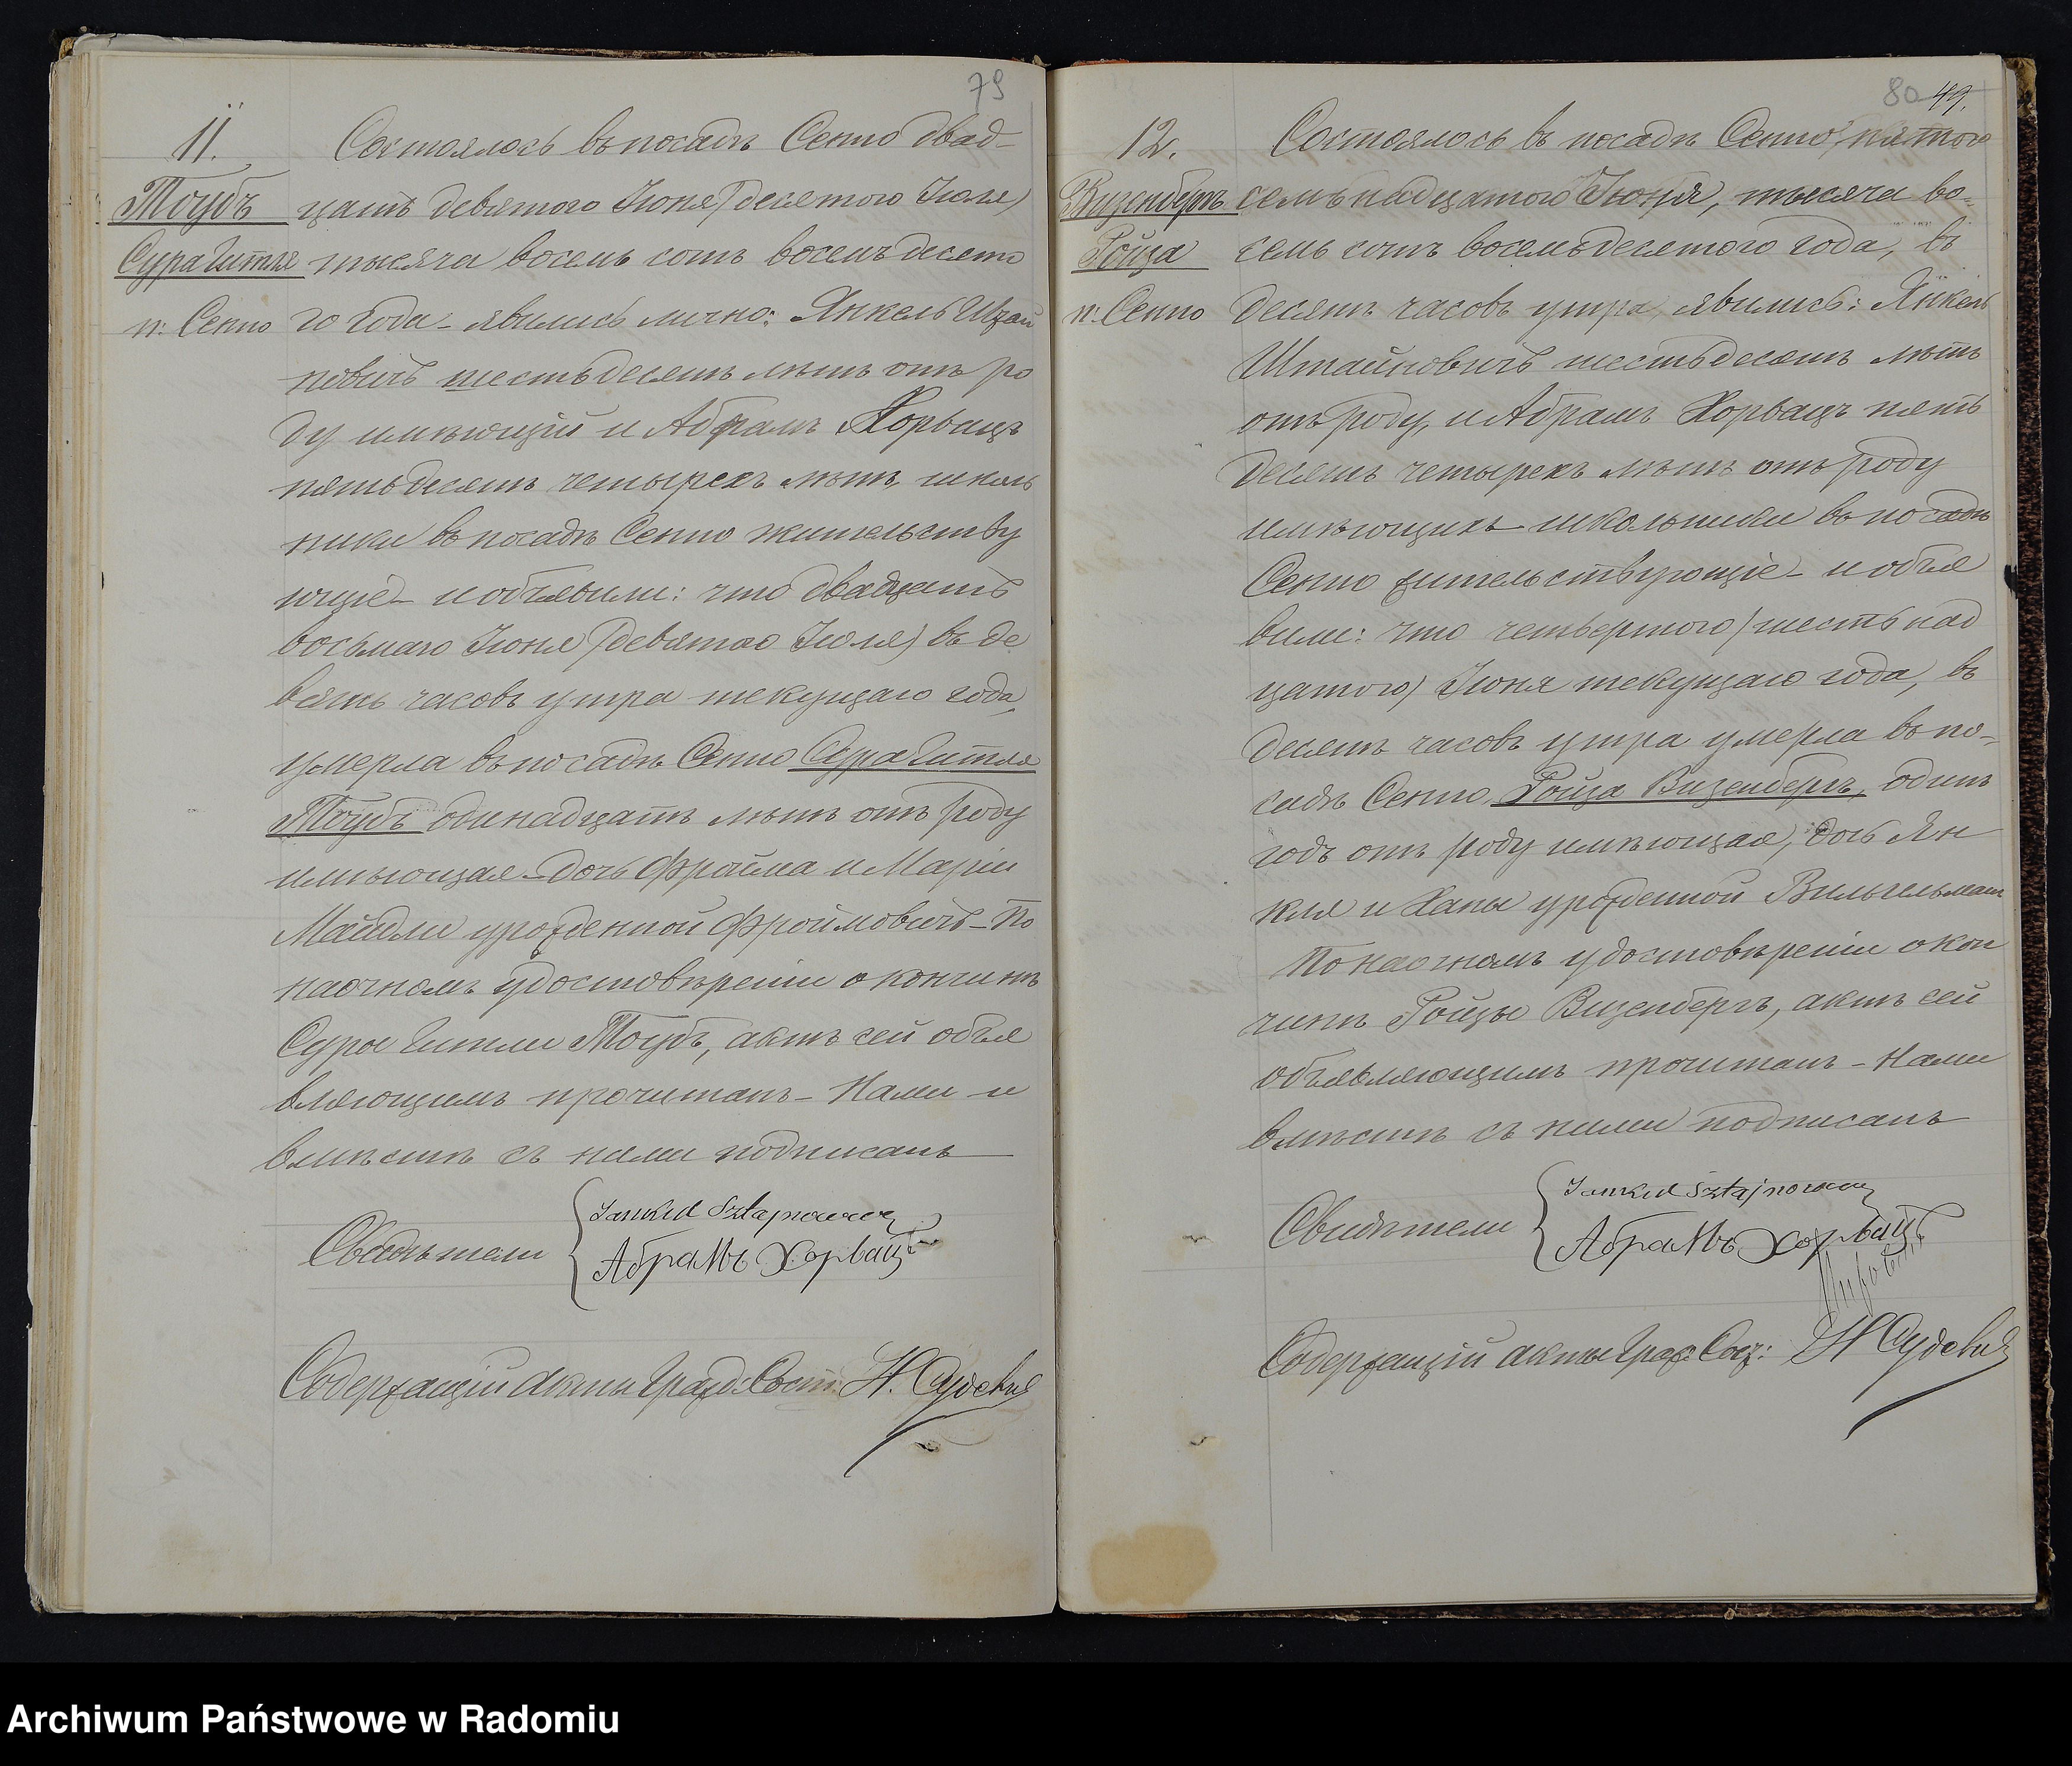 79
11.
Тоубъ
Сура Гитля
п. Сенно
Состоялось въ посадѣ Сенно двад-
цать девятого Іюня (десятого Іюля)
тысяча восемь сотъ восемъдесято
го года - явились лично: Янкель Штай
новичъ шестьдесятъ лѣтъ отъ ро
ду имѣющій и Абрамъ Хорвацъ
пятьдесятъ четырехъ лѣтъ, школь
ники въ посадѣ Сенно жительству
ющіе - и объявили: что двадцать
восьмаго Іюня (девятаго Іюля) въ де
вять часовъ утра текущаго года,
умерла въ посадѣ Сенно Сура Гитля
Тоубъ одинадцать лѣтъ отъ роду
имѣющая - дочь Фройма и Маріи
Майдли урожденной Фроймовичъ - По
наочномъ удостовѣреніи о кончинѣ
Суры Гитли Тоубъ, актъ сей объя
вляющимъ прочитанъ - Нами и
вмѣстѣ съ ними подписанъ
Свидѣтели
Jankiel Sztajnowicz
Абрамъ Хорвацъ
Содержащій Акты Гражд: Сост: Н. Судович
80 49.
12.
Визенбергъ
Ройза
п. Сенно
Состоялось въ посадѣ Сенно, пятого
семьнадцатого Іюня, тысяча во-
семь сотъ восемьдесятого года, въ
десять часовъ утра, явились: Янкель
Штайновичъ шестьдесятъ лѣтъ
отъ роду, и Абрамъ Хорвацъ пять
десятъ четырехъ лѣтъ отъ роду
имѣющихъ школьники въ посадѣ
Сенно жительствующіе - и объя
вили: что четвертого (шестьнад
цатого) Іюня текущаго года, въ
десять часовъ утра умерла въ по-
садѣ Сенно, Ройза Визенбергъ, одинъ
годъ отъ роду имѣющая, дочь Ян
кля и Ханы урожденной Вильгельман
По наочномъ удостовѣреніи о кон
чинѣ Ройзы Визенбергъ, актъ сей
объявляющимъ прочитанъ - Нами
вмѣстѣ съ ними подписанъ
Свидѣтели
Jankiel Sztajnowicz
Абрамъ Хорвацъ
Содержащій акты Граж: Сост: Н Судович
Archiwum Państwowe w Radomiu